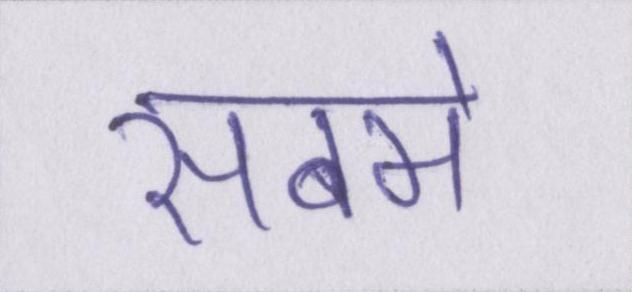 सबमे